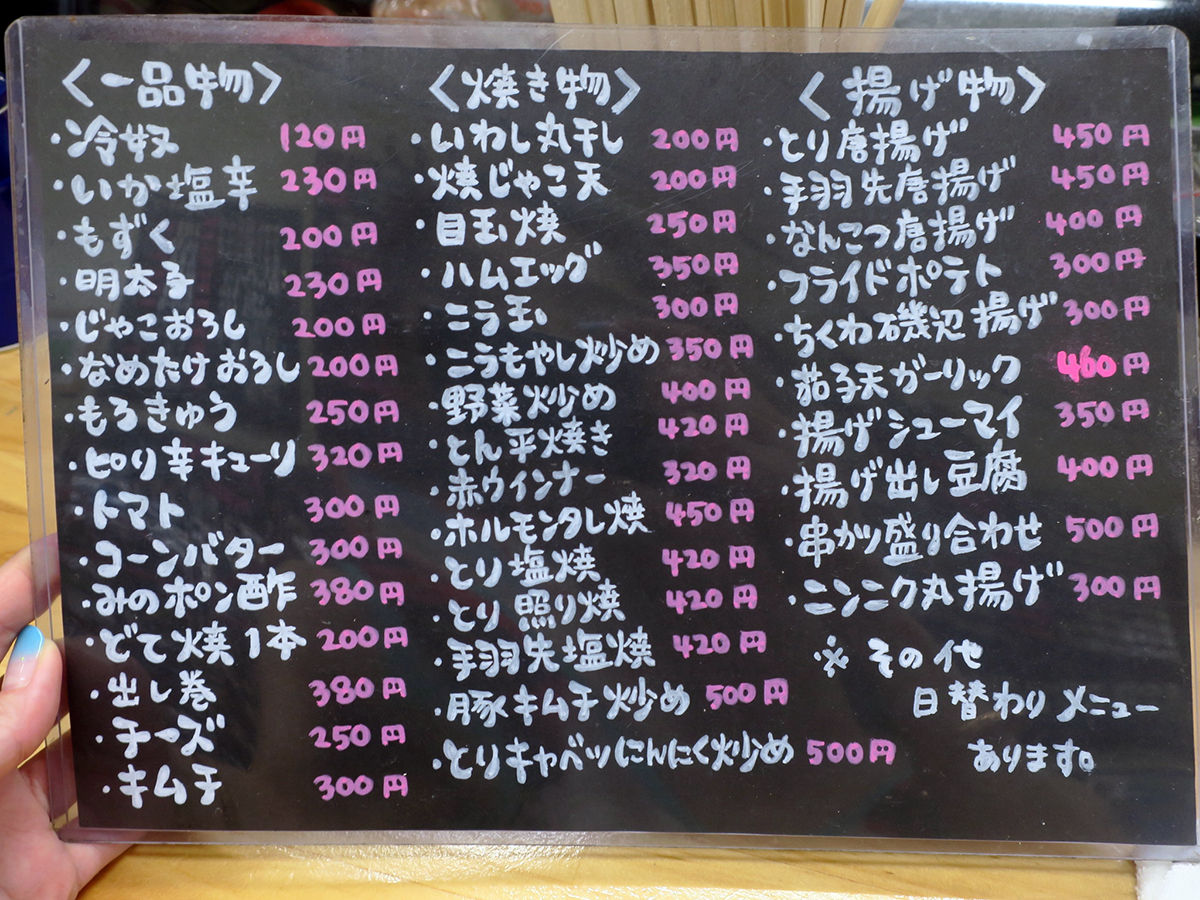 〈一品物〉
・冷奴 120円
・いか塩辛 230円
・もずく 200円
・明太子 230円
・じゃこおろし 200円
・なめたけおろし 200円
・もろきゅう 250円
・ピリ辛キューリ 320円
・トマト 300円
・コーンバター 300円
・みのポン酢 380円
・どて焼1本 200円
・出し巻 380円
・チーズ 250円
・キムチ 300円
〈焼き物〉
・いわし丸干し 200円
・焼じゃこ天 200円
・目玉焼 250円
・ハムエッグ 350円
・ニラ玉 300円
・ニラもやし炒め 350円
・野菜炒め 400円
・とん平焼き 420円
・赤ウィンナー 320円
・ホルモンタレ焼 450円
・とり塩焼 420円
・とり照り焼 420円
・手羽先塩焼 420円
・豚キムチ炒め 500円
・とりキャベツにんにく炒め 500円
〈揚げ物〉
・とり唐揚げ 450円
・手羽先唐揚げ 450円
・なんこつ唐揚げ 400円
・フライドポテト 300円
・ちくわ磯辺揚げ 300円
・茄子天ガーリック 460円
・揚げシューマイ 350円
・揚げ出し豆腐 400円
・串カツ盛り合わせ 500円
・ニンニク丸揚げ 300円
※その他
日替わりメニュー
あります。